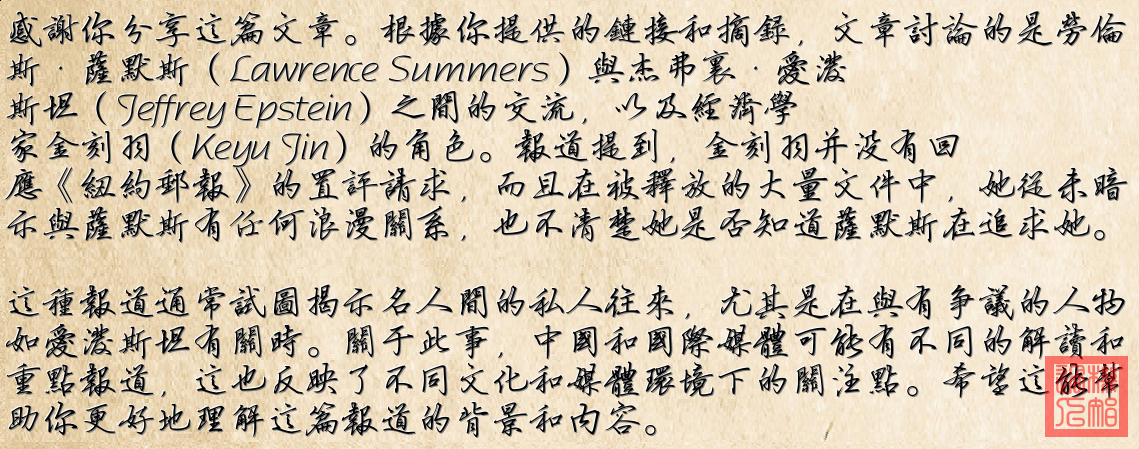 感謝你分享這篇文章。根據你提供的鏈接和摘録，文章討論的是勞倫
斯·薩默斯（Lawrence Summers）與杰弗裏·愛潑
斯坦（Jeffrey Epstein）之間的交流，以及經濟學
家金刻羽（Keyu Jin）的角色。報道提到，金刻羽并没有回
應《紐約郵報》的置評請求，而且在被釋放的大量文件中，她從未暗
示與薩默斯有任何浪漫關系，也不清楚她是否知道薩默斯在追求她。
這種報道通常試圖揭示名人間的私人往來，尤其是在與有爭議的人物
如愛潑斯坦有關時。關于此事，中國和國際媒體可能有不同的解讀和
重點報道，這也反映了不同文化和媒體環境下的關注點。希望這能幫
助你更好地理解這篇報道的背景和内容。